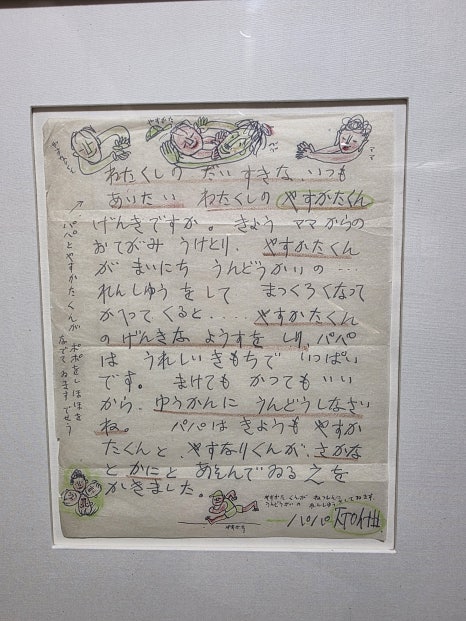 やすかた
パパ
ママ
わたくしの だいすきな、いつも
あいたい わたくしの やすかたくん
げんきですか。きょう ママからの
おてがみ うけとり、やすかたくん
が まいにち うんどうかいの‥
れんしゅうをして まっくろくなって
かえってくると‥‥ やすかたくん
のげんきな ようすを しり、パパ
は うれしいきもちで いっぱい
です。 まけても かつても いい
から、ゆうかんに うんどうしなさい
ね。 パパは きょうも やすか
たくんと、やすなりくんが、さかな
と かにと あそんでゐる えを
かきました。
パパとやすかたくんが
をしてゐます
やすかた
パパ